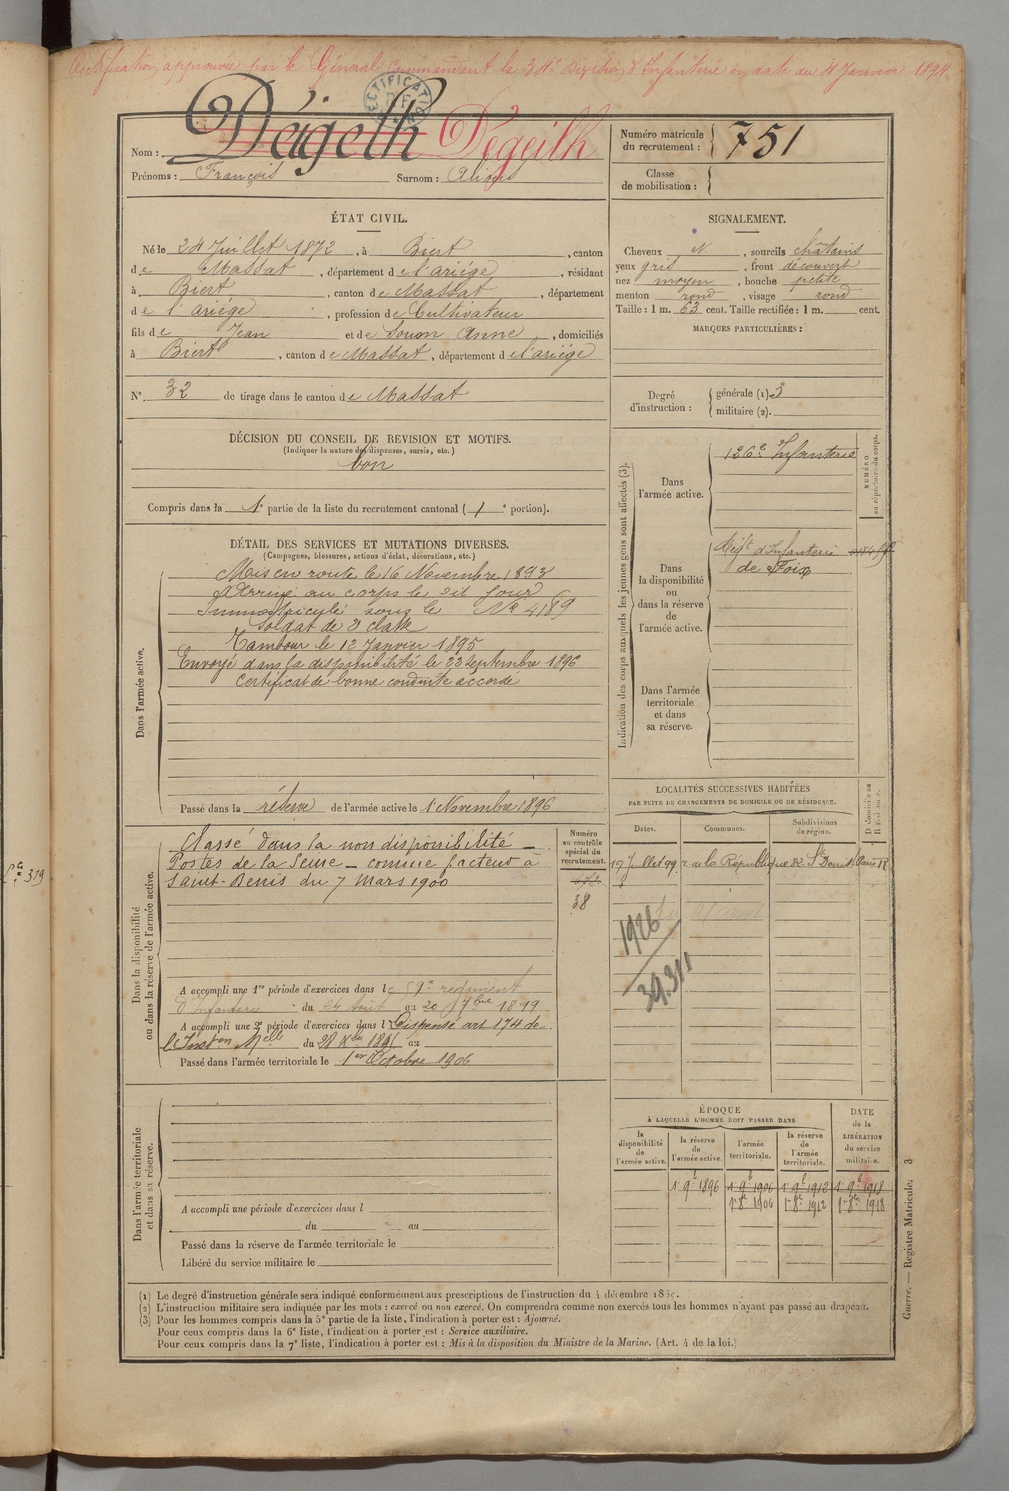 Rectification approuvée par le Général Commandant la 34e Division d'Infanterie en date du 4 Janvier 1894
RECTIFICATION
Nom : Dégelh Dégeilh
Prénoms : François Surnom :
Numéro matricule du recrutement : 751
Classe de mobilisation :
ÉTAT CIVIL.
Né le 24 Juillet 1872, à Biert, canton
de Massat, département de l'ariège, résidant
à Biert, canton de Massat, département
de l'ariège, profession de Cultivateur
fils de Jean et de Souon Anne, domiciliés
à Biert, canton de Massat, département de l'ariège
N° 32 de tirage dans le canton de Massat
SIGNALEMENT.
Cheveux N, sourcils châtains
yeux gris, front découvert
nez moyen, bouche petite
menton rond, visage rond
Taille : 1 m. 63 cent. Taille rectifiée : 1 m. cent.
MARQUES PARTICULIÈRES :
Degré d'instruction : générale (1) 3
militaire (2).
DÉCISION DU CONSEIL DE REVISION ET MOTIFS.
(Indiquer la nature des dispenses, sursis, etc.)
bon
Compris dans la 1e partie de la liste du recrutement cantonal ( / e portion).
DÉTAIL DES SERVICES ET MUTATIONS DIVERSES.
(Campagnes, blessures, actions d'éclat, décorations, etc.)
Dans l'armée active.
Mis en route le 16 Novembre 1893
Arrivé au corps le dit jour
Immatriculé sous le No 4189
Soldat de 2 classe
Tambour le 12 Janvier 1895
Envoyé dans la disponibilité le 23 septembre 1896
Certificat de bonne conduite accordé
Passé dans la réserve de l'armée active le 1 Novembre 1896
Indication des corps auxquels les jeunes gens sont affectés (3).
NUMÉRO au répertoire du corps.
Dans l'armée active.
126e Infanterie
Dans la disponibilité ou dans la réserve de l'armée active.
Régt d'Infanterie
de Foix
Dans l'armée territoriale et dans sa réserve.
Dans la disponibilité ou dans la réserve de l'armée active.
Classé dans la non disponibilité
Postes de la Seine - comme facteur à
Saint-Denis du 7 Mars 1900
Numéro au contrôle spécial du recrutement.
38
A accompli une 1re période d'exercices dans le 59e régiment
d'Infanterie du 24 Août au 20 7bre 1899
A accompli une 2e période d'exercices dans l Dispensé art. 174 de
l'Inston Melle du 28 au
Passé dans l'armée territoriale le 1er Octobre 1906
LOCALITÉS SUCCESSIVES HABITÉES
PAR SUITE DE CHANGEMENTS DE DOMICILE OU DE RÉSIDENCE.
Dates. Communes. Subdivisions de région. D domicile ou R résidence.
19 Juillet 99 r. de la République St Denis
1926
39.311
Dans l'armée territoriale et dans sa réserve.
A accompli une période d'exercices dans l
du au
Passé dans la réserve de l'armée territoriale le
Libéré du service militaire le
ÉPOQUE
À LAQUELLE L'HOMME DOIT PASSER DANS
DATE de la LIBÉRATION du service militaire.
la disponibilité de l'armée active. la réserve de l'armée active. l'armée territoriale. la réserve de l'armée territoriale.
1 9e 1896 1 9e 1906 1 9e 1912 1 9e 1918
1 8e 1906 1 8e 1912 1 8e 1918
(1) Le degré d'instruction générale sera indiqué conformément aux prescriptions de l'instruction du 4 décembre
(2) L'instruction militaire sera indiquée par les mots : exercé ou non exercé. On comprendra comme non exercés tous les hommes n'ayant pas passé au drapeau.
(3) Pour les hommes compris dans la 5e partie de la liste, l'indication à porter est : Ajourné.
Pour ceux compris dans la 6e liste, l'indication à porter est : Service auxiliaire.
Pour ceux compris dans la 7e liste, l'indication à porter est : Mis à la disposition du Ministre de la Marine. (Art. 4 de la loi.)
Guerre. — Registre Matricule. 3